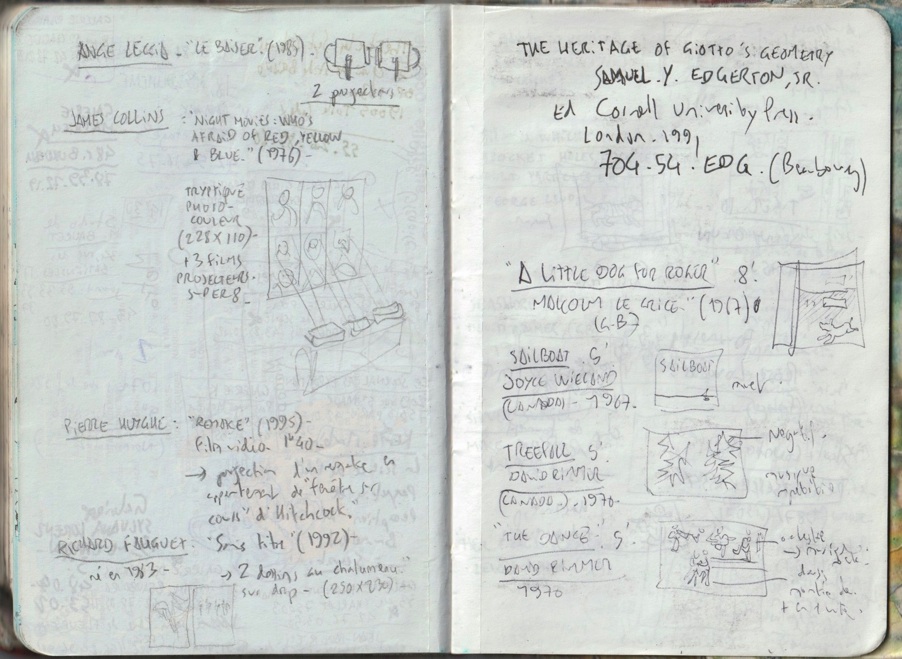 ANGE LECCIA - "LE BAISER" (1985)
2 projecteurs
JAMES COLLINS : "NIGHT MOVIES: WHO'S
AFRAID OF RED, YELLOW
& BLUE." (1976) -
TRYPTIQUE
PHOTO-
COULEUR
(225 X 110) -
+ 3 FILMS
PROJECTEURS
SUPER 8 -
PIERRE HUYGHE : "REMAKE" (1995) -
Film vidéo 1h40 -
→ projection d'un remake en
appartement de "fenêtre sur
cour" d'Hitchcock."
RICHARD FAUGUET "Sans titre" (1992) -
né en 1963 -
→ 2 dessins au chalumeau
sur drap - (250 x 290) -
THE HERITAGE OF GIOTTO'S GEOMETRY
SAMUEL. Y. EDGERTON, JR.
Ed Cornell University Press.
London. 1991
704.54. EDG. (Beaubourg)
"A LITTLE DOG FOR ROGER" 8'
MALCOLM LE GRICE" (1967)
(G.B.)
SAILBOAT. 5'
JOYCE WIELAND
(CANADA) - 1967.
SAILBOAT
muet.
TREEFALL 5'
DAVID RIMMER
(CANADA.) - 1970.
Négatif.
musique
répétitive
"THE DANCE". 5'
DAVID RIMMER
1970
→